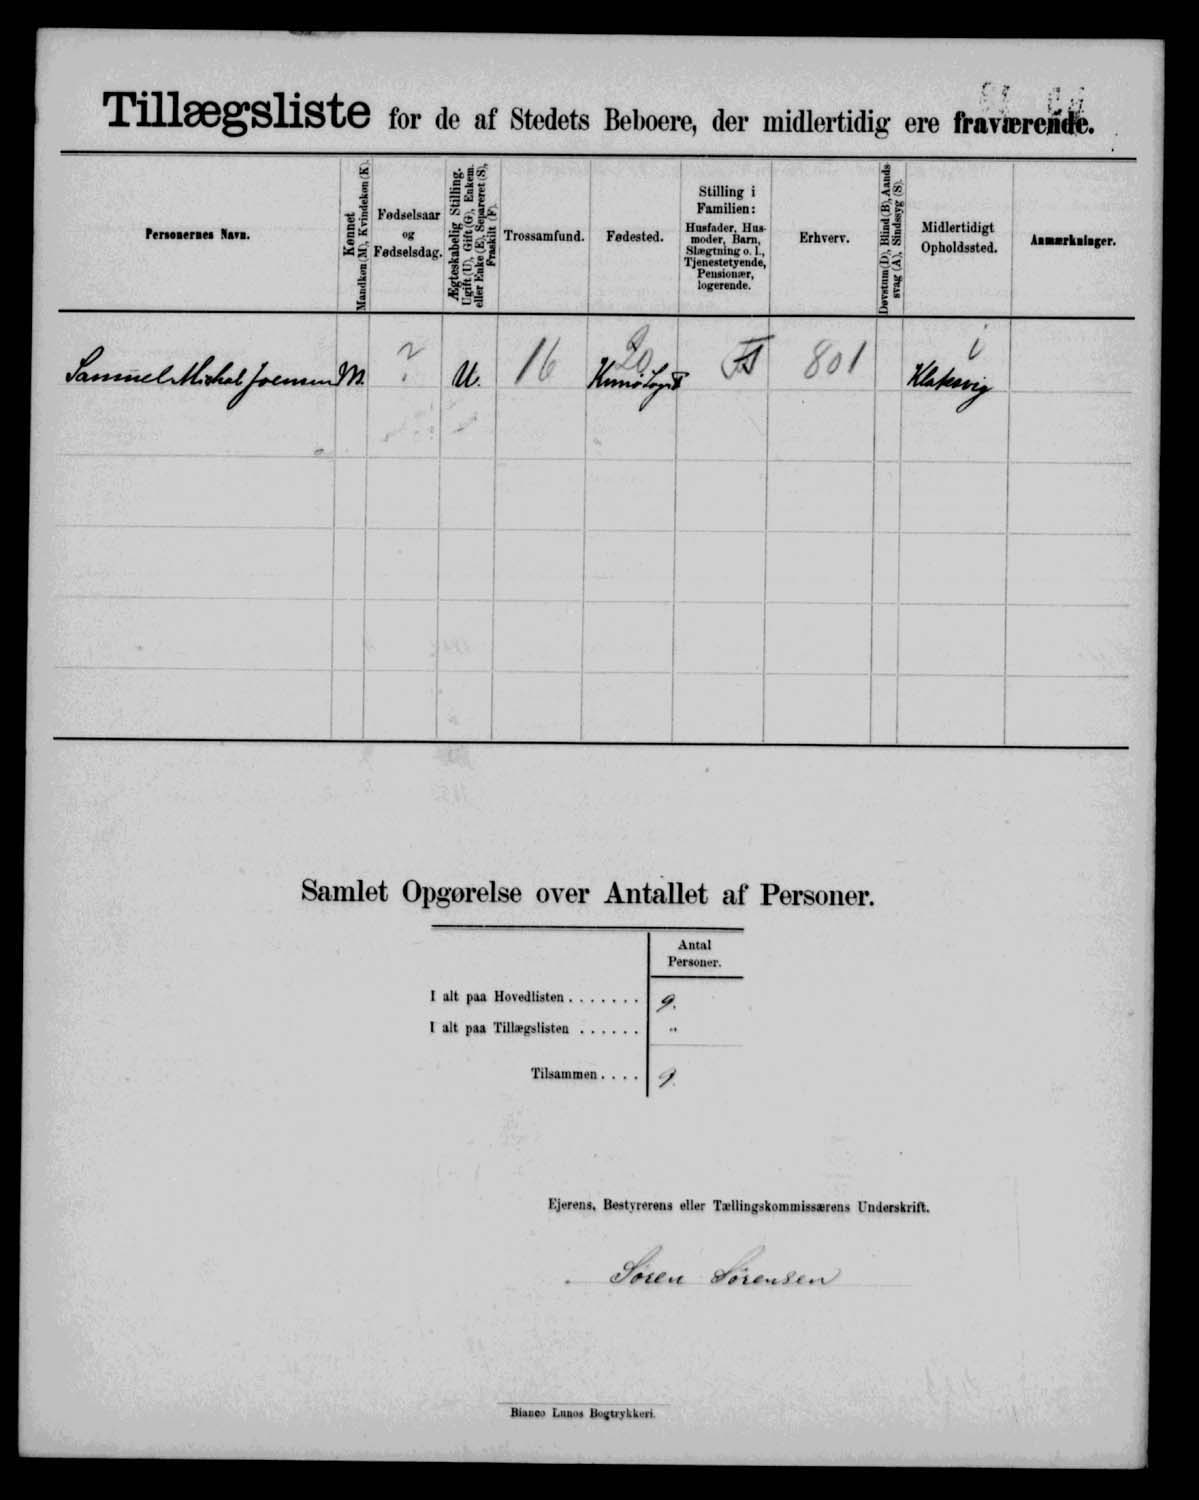 Tillægsliste for de af Stedets Beboere, der midlertidig ere fraværende.
Personernes Navn.
Kønnet
Mandkøn (M), Kvindekøn (K).
Fødselsaar
og
Fødselsdag.
Ægteskabelig Stilling.
Ugift (U), Gift (G), Enkem.
eller Enke (E), Separeret (S),
Fraskilt (F).
Trossamfund.
Fødested.
Stilling i
Familien:
Husfader, Hus-
moder, Barn,
Slægtning o. l.,
Tjenestetyende,
Pensionær,
logerende.
Erhverv.
Døvstum (D), Blind (B), Aands-
svag (A), Sindssyg (S).
Midlertidigt
Opholdssted.
Anmærkninger.
Samuel Michal Joensen M. ? U. 16 20 801 i
Klaksvig
Samlet Opgørelse over Antallet af Personer.
Antal
Personer.
I alt paa Hovedlisten . . . . . . . 9.
I alt paa Tillægslisten . . . . . . "
Tilsammen . . . . 9.
Ejerens, Bestyrerens eller Tællingskommissærens Underskrift.
Søren Sørensen
Bianco Lunos Bogtrykkeri.